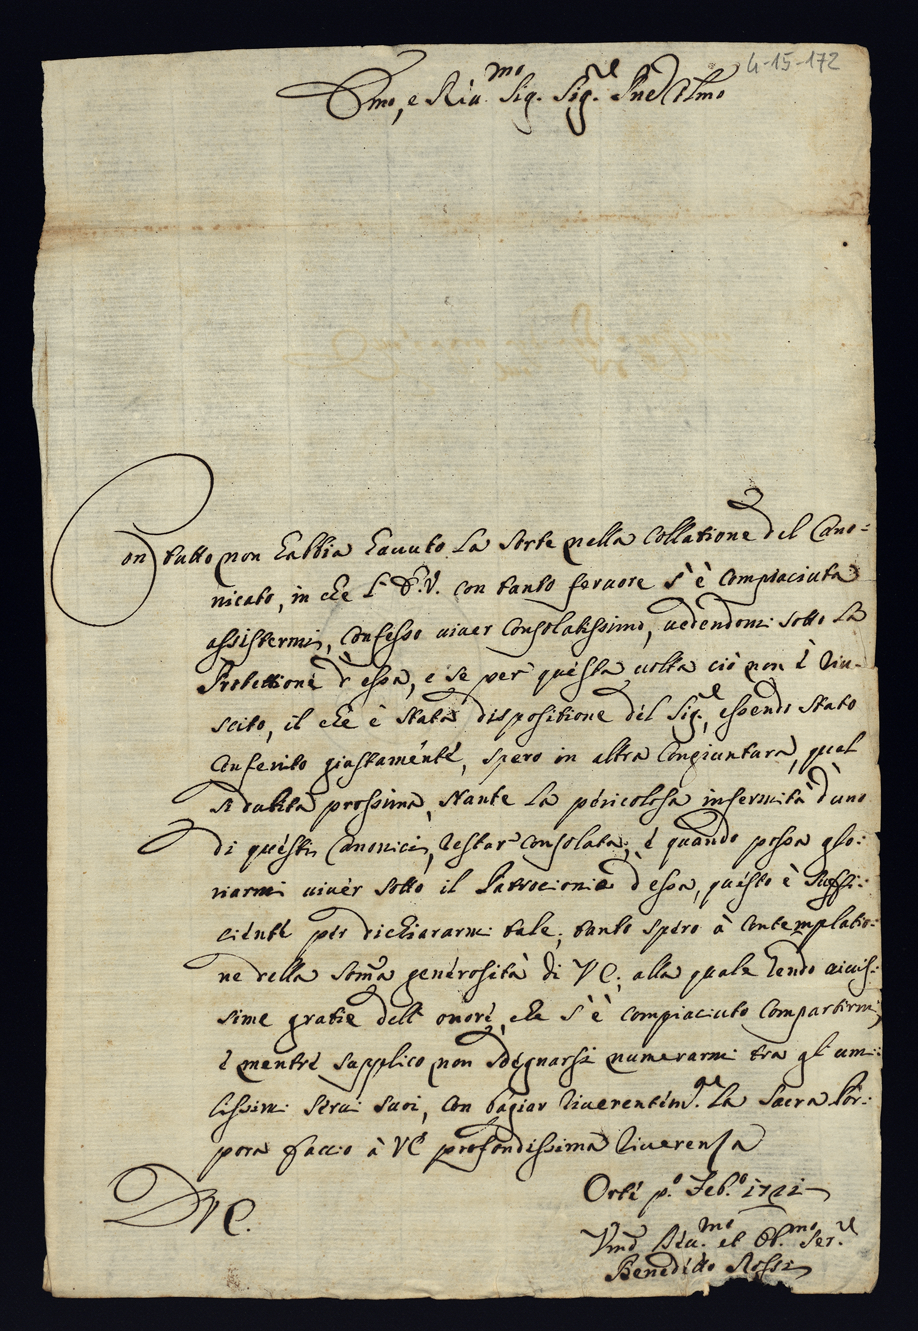 4-15-172
Emo, e Reu.mo Sig. Sig.re Pne Clmo
Con tutto non habbia hauuto la sorte nella Collatione del Cano=
nicato, in che l'E.V. con tanto feruore s'è compiaciuta
assistermi, Confesso viuer consolatissimo, uedendomi sotto la
Protettione d'essa, e se per questa uolta ciò non è riu=
scito, il che è stata dispositione del Sig.re, essendo stato
conferito giustamente, spero in altra congiuntura, qual
si dubita prossima, stante la pericolosa infermità d'uno
di questi Canonici, restar consolata; e quando possa glo:
riarmi uiuer sotto il Patrocinio d'essa, questo è suffi:
ciente per dichiararmi tale; tanto spero à contemplatio:
ne della somma generosità di VE. alla quale rendo uiuis:
sime gratie dell'onore, che s'è compiaciuto compartirmi,
e mentre supplico non sdegnarsi numerarmi tra gl'umi:
lissimi serui suoi, con bagiar riuerentem.te la sacra Por:
pora faccio à VE profondissima riuerenza
Orte p.o Feb.o 1721
D VE.
Vmo Deu.mo et Ob.mo Ser.re
Benedetto Rossi